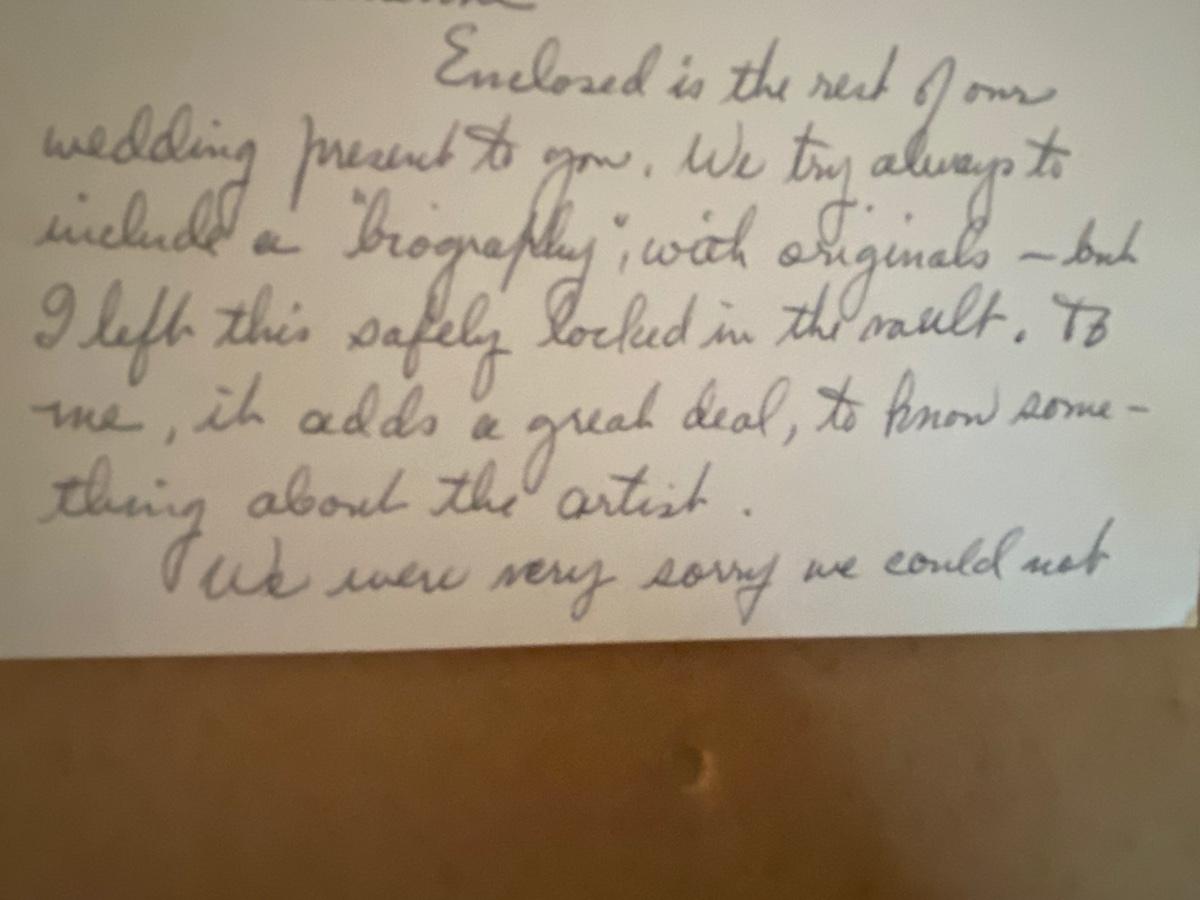 Enclosed is the rest of our
wedding present to you. We try always to
include a "biography", with originals – but
I left this safely locked in the vault. To
me, it adds a great deal, to know some-
thing about the artist.
We were very sorry we could not